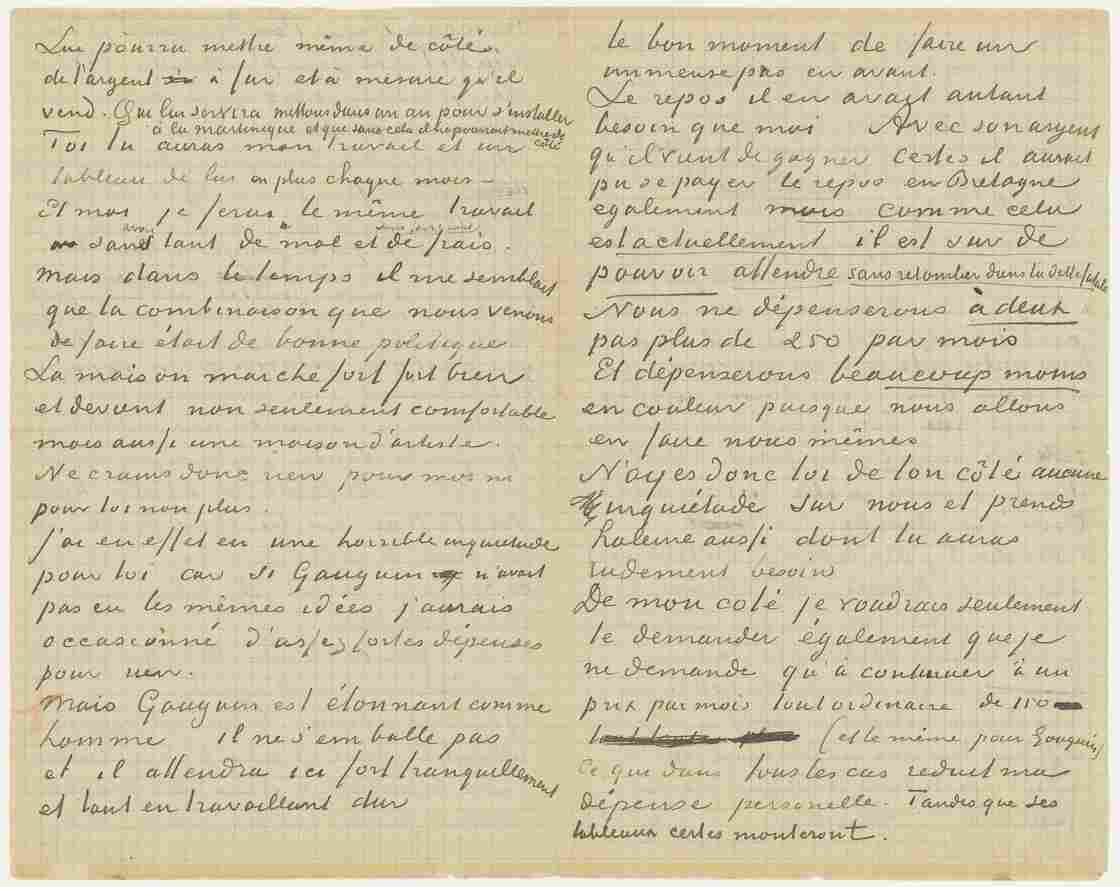 Lui pourra mettre même de côté
de l'argent à fur et à mesure qu'il
vend. Qui lui servira mettons dans un an pour s'installer
à la martinique et que sans cela il ne pourrait mettre de côté
Toi tu auras mon travail et un
tableau de lui en plus chaque mois –
Et moi je ferai le même travail
avec sans tant de mal et de frais.
mais dans le temps il me semblait
que la combinaison que nous venons
de faire était de bonne politique
La maison marche fort fort bien
et devient non seulement comfortable
mais aussi une maison d'artiste.
Ne crains donc rien pour moi ni
pour toi non plus.
j'ai en effet eu une horrible inquiétude
pour toi car si Gauguin n'avait
pas eu les mêmes idées j'aurais
occasionné d'assez fortes dépenses
pour rien.
Mais Gauguin est étonnant comme
homme il ne s'emballe pas
et il attendra ici fort tranquillement
et tout en travaillant dur
le bon moment de faire un
immense pas en avant.
Le repos il en avait autant
besoin que moi Avec son argent
qu'il vient de gagner Certes il aurait
pu se payer le repos en Bretagne
également mais comme cela
est actuellement il est sur de
pouvoir attendre sans retomber dans la dette fatale
Nous ne dépenserons à deux
pas plus de 250 par mois
Et dépenserons beaucoup moins
en couleur puisque nous allons
en faire nous mêmes
N'ayes donc toi de ton côté aucune
inquiétude sur nous et prends
haleine aussi dont tu auras
rudement besoin
De mon coté je voudrais seulement
te demander également que je
ne demande qu'à continuer à un
prix par mois tout ordinaire de 150
(et le même pour Gauguin)
Ce qui dans tous les cas reduit ma
dépense personelle. Tandis que ses
tableaux certes monteront.